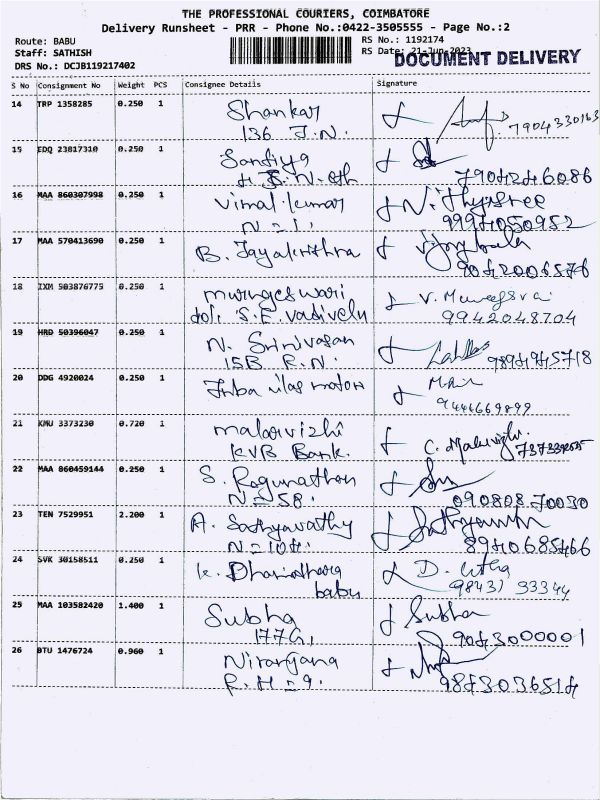 THE PROFESSIONAL COURIERS, COIMBATORE
Delivery Runsheet - PRR - Phone No.:0422-3505555 - Page No.:2
Route: BABU
RS No.: 1192174
Staff: SATHISH
RS Date: 21-Jun-2023
DOCUMENT DELIVERY
DRS No.: DCJB119217402
S No Consignment No Weight PCS Consignee Details Signature
14 TRP 1358285 0.250 1 Shankar
136 J.N. 7904330163
15 EDQ 23817310 0.250 1 Sandiya
7904246086
16 MAA 860307998 0.250 1 Vimal kumar N. Thejisree
N=1. 9994050952
17 MAA 570413690 0.250 1 B. Jayakrithra
9042006576
18 IXM 503876775 0.250 1 murugeswari V. Muneeswari
S.E. Vadivelu 9942048704
19 HRD 50396047 0.250 1 N. Srinivasan
15B R.N. 9894945718
20 DDG 4920024 0.250 1 Inba vilas motors
9444669899
21 KMU 3373230 0.720 1 malarvizhi C. Malarvizhi
KVB Bank.
22 MAA 860459144 0.250 1 S. Ragunathan
N=58. 09080870030
23 TEN 7529951 2.200 1 A. Sathyavathy
N=104. 8940685466
24 SVK 30158511 0.250 1 K. D. Latha
babu 98431 33344
25 MAA 103582420 1.400 1 Subha Subha
177G, 9043000001
26 BTU 1476724 0.960 1 Niranjana
R.H=9. 9843036514